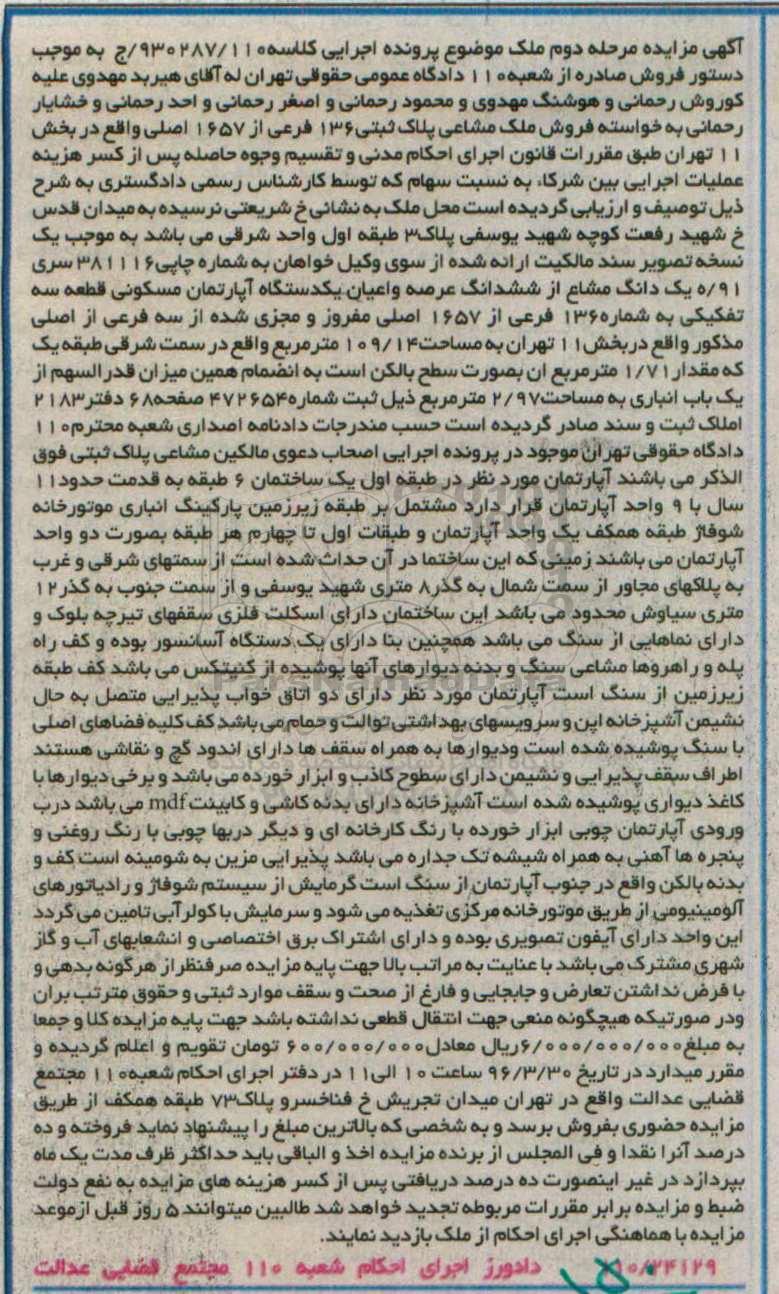 آگهی مزایده مرحله دوم ملک موضوع پرونده اجرایی کلاسه۹۳۰۲۸۷/۱۱۰/ج به موجب
دستور فروش صادره از شعبه۱۱۰ دادگاه عمومی حقوقی تهران له آقای هیربد مهدوی علیه
کوروش رحمانی و هوشنگ مهدوی و محمود رحمانی و اصغر رحمانی و احد رحمانی و خشایار
رحمانی به خواسته فروش ملک مشاعی پلاک ثبتی۱۳۶ فرعی از ۱۶۵۷ اصلی واقع در بخش
۱۱ تهران طبق مقررات قانون اجرای احکام مدنی و تقسیم وجوه حاصله پس از کسر هزینه
عملیات اجرایی بین شرکاء به نسبت سهام که توسط کارشناس رسمی دادگستری به شرح
ذیل توصیف و ارزیابی گردیده است محل ملک به نشانی خ شریعتی نرسیده به میدان قدس
خ شهید رفعت کوچه شهید یوسفی پلاک۳ طبقه اول واحد شرقی می باشد به موجب یک
نسخه تصویر سند مالکیت ارائه شده از سوی وکیل خواهان به شماره چاپی۳۸۱۱۱۶ سری
ه/۹۱ یک دانگ مشاع از ششدانگ عرصه واعیان یکدستگاه آپارتمان مسکونی قطعه سه
تفکیکی به شماره۱۳۶ فرعی از ۱۶۵۷ اصلی مفروز و مجزی شده از سه فرعی از اصلی
مذکور واقع دربخش۱۱ تهران به مساحت۱۰۹/۱۴ مترمربع واقع در سمت شرقی طبقه یک
که مقدار۱/۷۱ مترمربع ان بصورت سطح بالکن است به انضمام همین میزان قدرالسهم از
یک باب انباری به مساحت۲/۹۷ مترمربع ذیل ثبت شماره۴۷۲۶۵۴ صفحه۶۸ دفتر۲۱۸۳
املاک ثبت و سند صادر گردیده است حسب مندرجات دادنامه اصداری شعبه محترم۱۱۰
دادگاه حقوقی تهران موجود در پرونده اجرایی اصحاب دعوی مالکین مشاعی پلاک ثبتی فوق
الذکر می باشند آپارتمان مورد نظر در طبقه اول یک ساختمان ۶ طبقه به قدمت حدود۱۱
سال با ۹ واحد آپارتمان قرار دارد مشتمل بر طبقه زیرزمین پارکینگ انباری موتورخانه
شوفاژ طبقه همکف یک واحد آپارتمان و طبقات اول تا چهارم هر طبقه بصورت دو واحد
آپارتمان می باشند زمینی که این ساختما در آن حداث شده است از سمتهای شرقی و غرب
به پلاکهای مجاور از سمت شمال به گذر۸ متری شهید یوسفی و از سمت جنوب به گذر۱۲
متری سیاوش محدود می باشد این ساختمان دارای اسکلت فلزی سقفهای تیرچه بلوک و
دارای نماهایی از سنگ می باشد همچنین بنا دارای یک دستگاه آسانسور بوده و کف راه
پله و راهروها مشاعی سنگ و بدنه دیوارهای آنها پوشیده از کنیتکس می باشد کف طبقه
زیرزمین از سنگ است آپارتمان مورد نظر دارای دو اتاق خواب پذیرایی متصل به حال
نشیمن آشپزخانه اپن و سرویسهای بهداشتی توالت و حمام می باشد کف کلیه فضاهای اصلی
با سنگ پوشیده شده است ودیوارها به همراه سقف ها دارای اندود گچ و نقاشی هستند
اطراف سقف پذیرایی و نشیمن دارای سطوح کاذب و ابزار خورده می باشد و برخی دیوارها با
کاغذ دیواری پوشیده شده است آشپزخانه دارای بدنه کاشی و کابینت mdf می باشد درب
ورودی آپارتمان چوبی ابزار خورده با رنگ کارخانه ای و دیگر دربها چوبی با رنگ روغنی و
پنجره ها آهنی به همراه شیشه تک جداره می باشد پذیرایی مزین به شومینه است کف و
بدنه بالکن واقع در جنوب آپارتمان از سنگ است گرمایش از سیستم شوفاژ و رادیاتورهای
آلومینیومی از طریق موتورخانه مرکزی تغذیه می شود و سرمایش با کولر آبی تامین می گردد
این واحد دارای آیفون تصویری بوده و دارای اشتراک برق اختصاصی و انشعابهای آب و گاز
شهری مشترک می باشد با عنایت به مراتب بالا جهت پایه مزایده صرفنظر از هرگونه بدهی و
با فرض نداشتن تعارض و جابجایی و فارغ از صحت و سقف موارد ثبتی و حقوق مترتب بران
ودر صورتیکه هیچگونه منعی جهت انتقال قطعی نداشته باشد جهت پایه مزایده کلا و جمعا
به مبلغ۶/۰۰۰/۰۰۰/۰۰۰ریال معادل۶۰۰/۰۰۰/۰۰۰ تومان تقویم و اعلام گردیده و
مقرر میدارد در تاریخ ۹۶/۳/۳۰ ساعت ۱۰ الی۱۱ در دفتر اجرای احکام شعبه۱۱۰ مجتمع
قضایی عدالت واقع در تهران میدان تجریش خ فناخسرو پلاک۷۳ طبقه همکف از طریق
مزایده حضوری بفروش برسد و به شخصی که بالاترین مبلغ را پیشنهاد نماید فروخته و ده
درصد آنرا نقدا و فی المجلس از برنده مزایده اخذ و الباقی باید حداکثر ظرف مدت یک ماه
بپردازد در غیر اینصورت ده درصد دریافتی پس از کسر هزینه های مزایده به نفع دولت
ضبط و مزایده برابر مقررات مربوطه تجدید خواهد شد طالبین میتوانند ۵ روز قبل ازموعد
مزایده با هماهنگی اجرای احکام از ملک بازدید نمایند.
۱۱۰/۲۴۱۲۹ دادورز اجرای احکام شعبه ۱۱۰ مجتمع قضایی عدالت